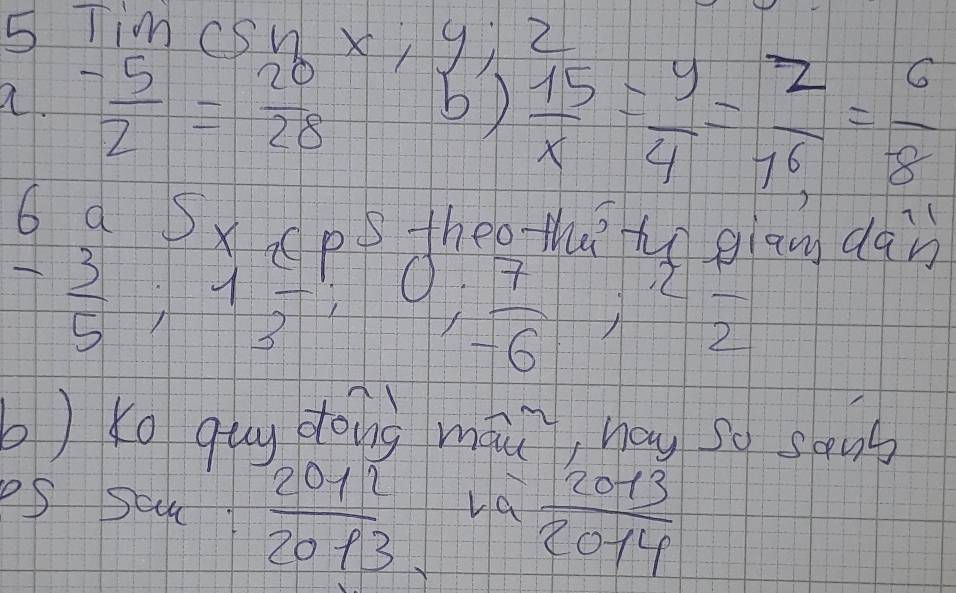 5 Tìm csn x, y, z
a. -5/2 = 20/28 b) 15/x = y/4 = z/16 = 6/-8
6 a Sx cps theo thứ tự giảm dần
-3/5; 1 -/3; 0; 7/-6; 2 -/2
b) Ko quy đồng mẫu, hãy so sánh
PS sau: 2012/2013 và 2013/2014